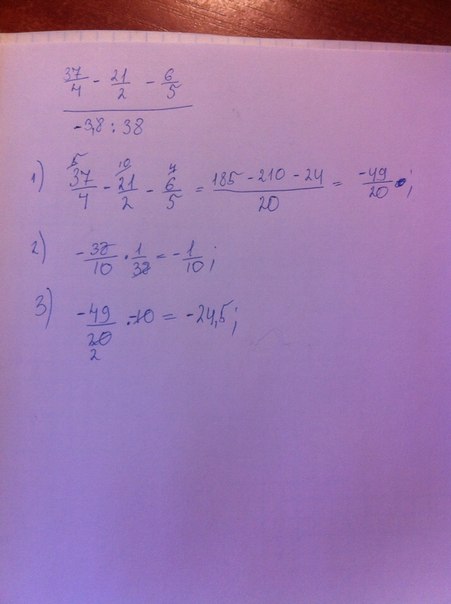 37/4 - 21/2 - 6/5
-3,8 : 38
1) 37/4 (5) - 21/2 (10) - 6/5 (4) = (185 - 210 - 24)/20 = -49/20;
2) -38/10 · 1/38 = -1/10;
3) -49/20 · -10 = -24,5;
2